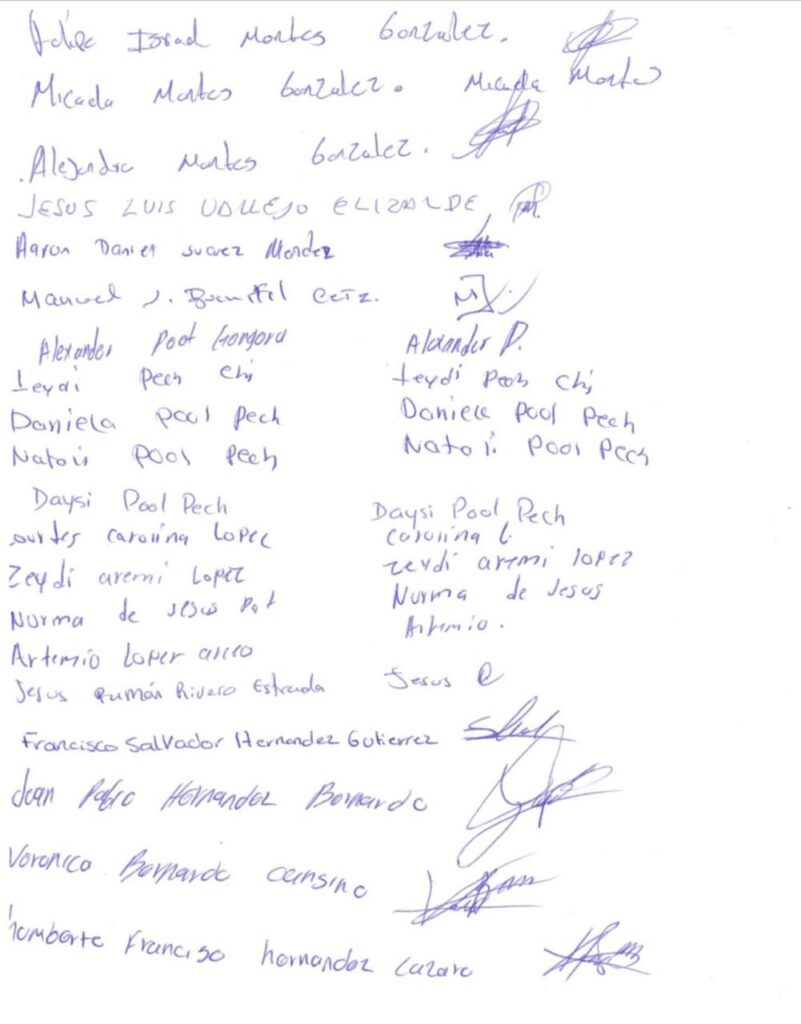 Felipe Israel Montes Gonzalez.
Micaela Montes Gonzalez. Micaela Montes
Alejandra Montes Gonzalez.
JESUS LUIS VALLEJO ELIZALDE
Aaron Daniel suarez Mendez
Manuel J. Ceiz.
Alexander Poot Gongora Alexander P.
Leydi Pech Chi Leydi Pech Chi
Daniela Pool Pech Daniela Pool Pech
Pool Pech Pool Pech
Daysi Pool Pech Daysi Pool Pech
Lourdes carolina Lopez carolina L.
Zeydi aremi Lopez Zeydi aremi lopez
Norma de Jesus Pat Norma de Jesus
Artemio Lopez Artemio.
Jesus Román Rivero Estrada Jesus
Francisco Salvador Hernandez Gutierrez
Juan Pablo Hernandez Bernardo
Veronica Bernardo cansino
humberto Francisco hernandez Lazaro